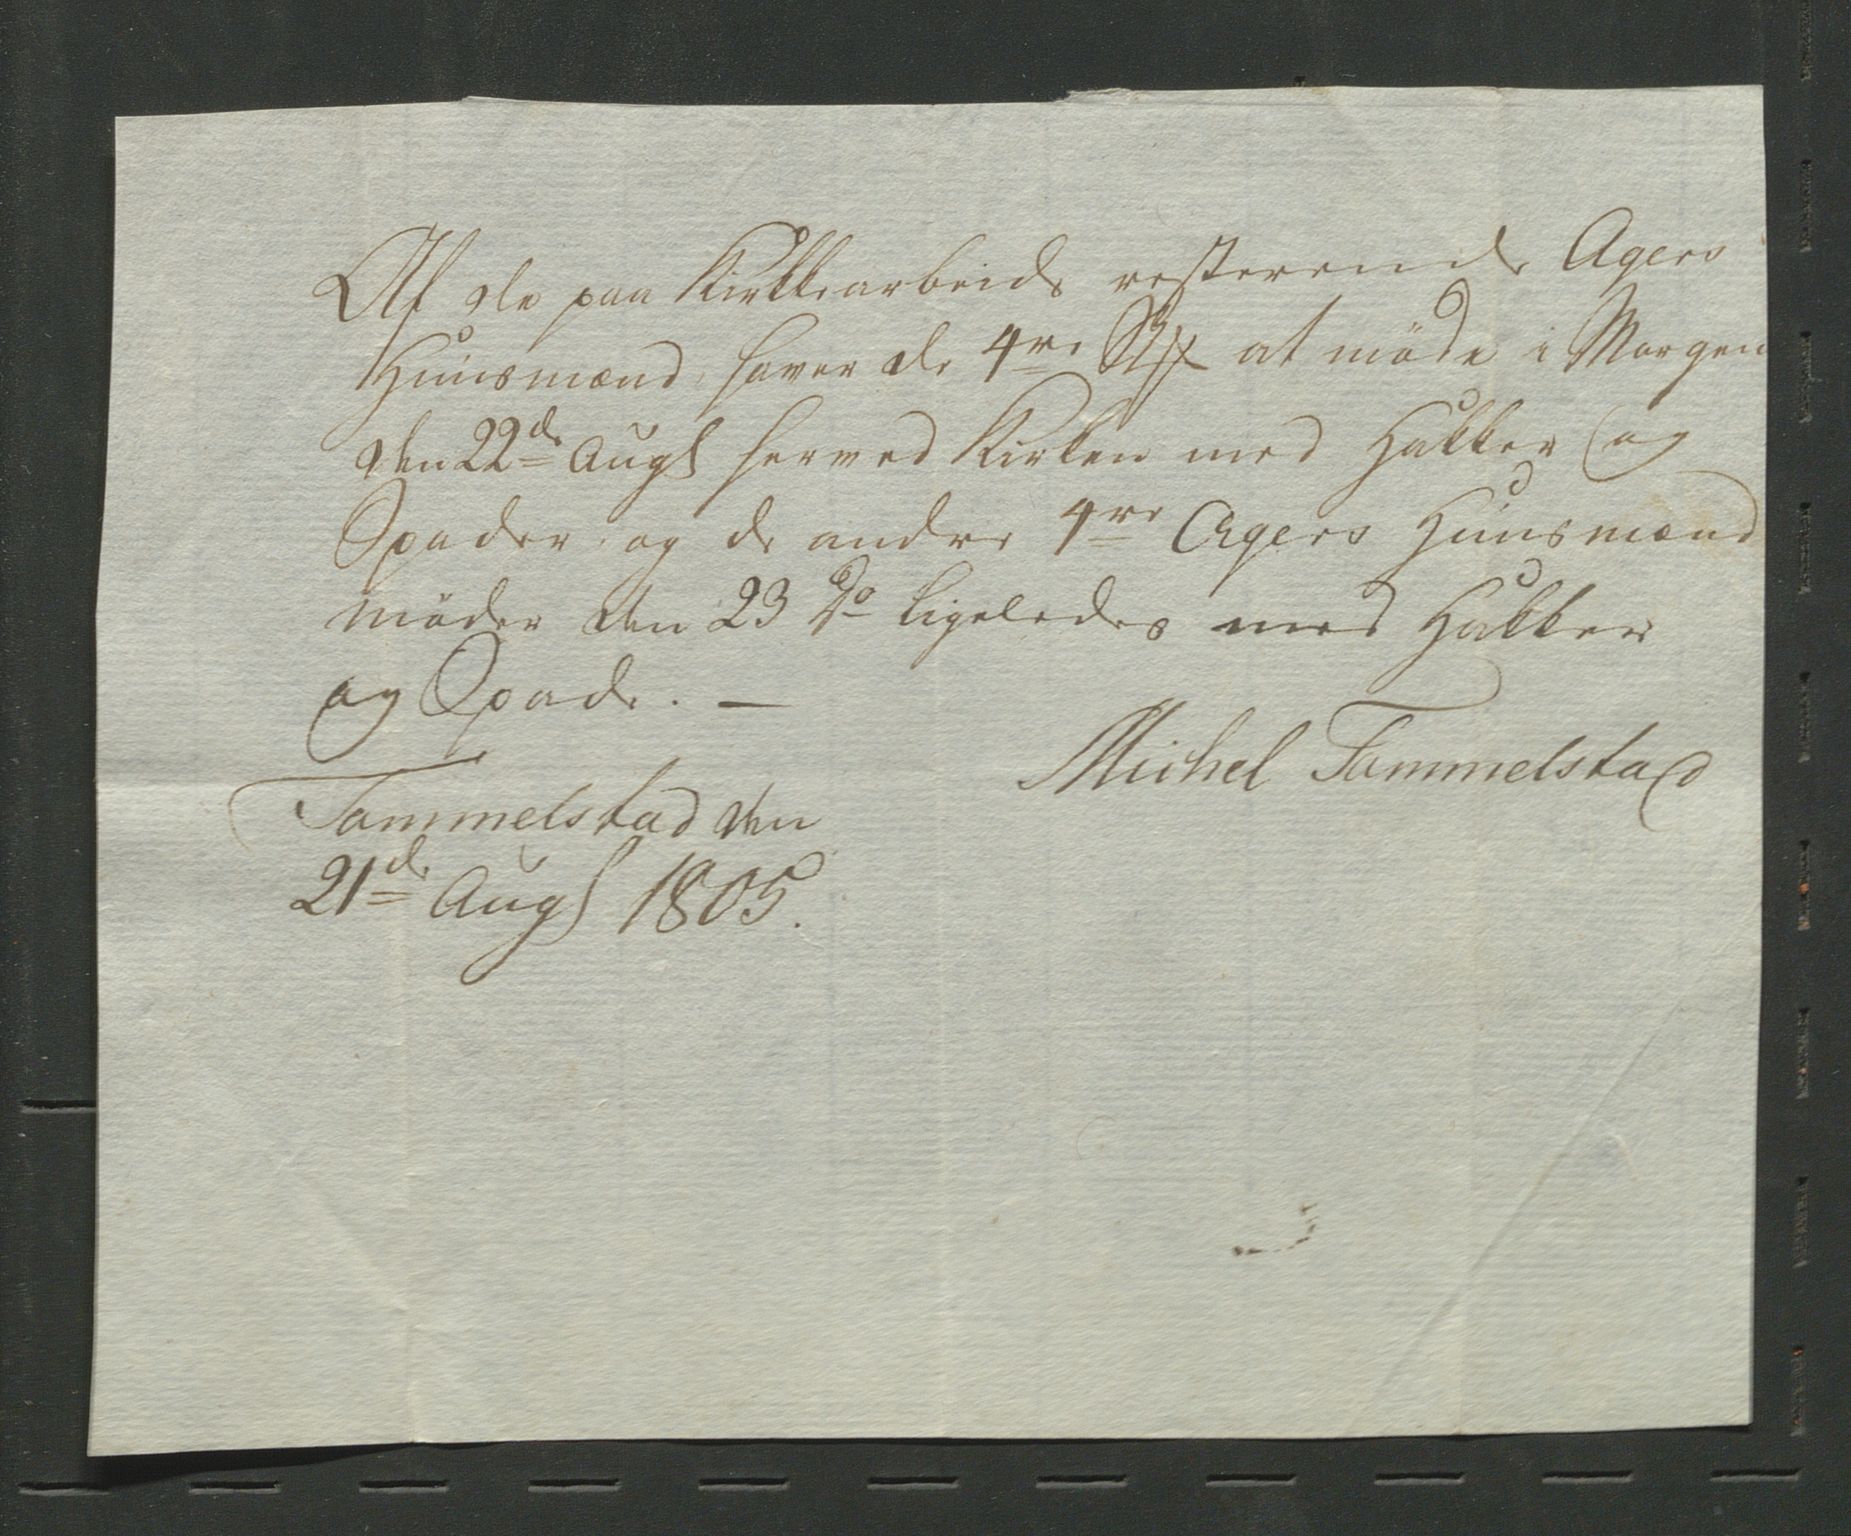 Af de paa Kirkkearbeide resterende Agers
Huusmænd haver de 4re at møde i Morgen
den 22de Augs herved Kirken med Hakker og
Spader og de andre 4re Agers Huusmænd
møder den 23 do ligeledes med Hakker
og Spade. —
Michel Tommelstad
Tommelstad den
21de Augs 1805.